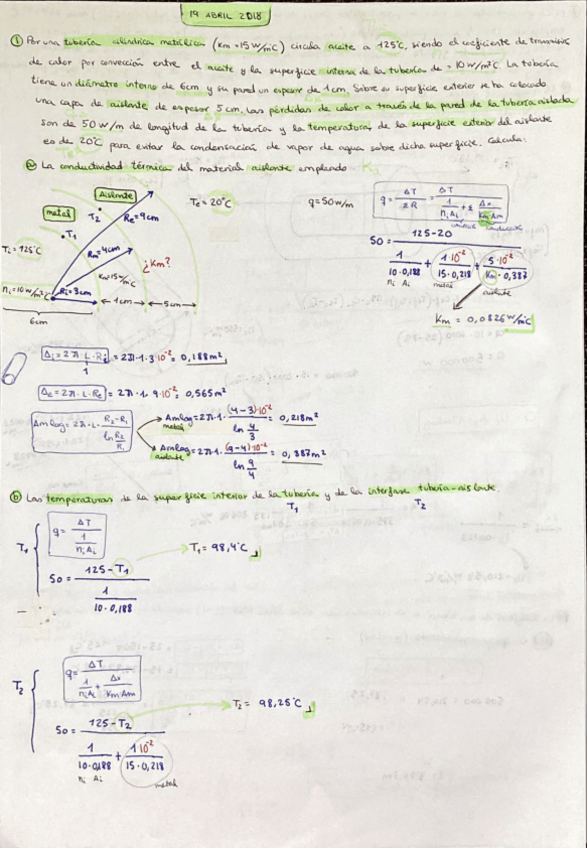 19 ABRIL 2018
① Por una tubería cilíndrica metálica (Km = 15 W/m°C) circula aceite a 125°C, siendo el coeficiente de transmisión
de calor por convección entre el aceite y la superficie interna de la tubería de = 10 W/m²°C. La tubería
tiene un diámetro interno de 6cm y su pared un espesor de 1cm. Sobre su superficie exterior se ha colocado
una capa de aislante de espesor 5cm. Las pérdidas de calor a través de la pared de la tubería aislada
son de 50 W/m de longitud de la tubería y la temperatura de la superficie exterior del aislante
es de 20°C para evitar la condensación de vapor de agua sobre dicha superficie. Calcula:
ⓐ La conductividad térmica del material aislante empleado
Aislante
metal
T₂
T₁
Re = 9cm
Te = 20°C
q = 50 w/m
q = ΔT / ΣR = ΔT / (1/(hi Ai) + Σ Δx/(Km Am))
50 = (125 - 20) / (1/(10·0,188) + 1·10⁻²/(15·0,218) + 5·10⁻²/(Km·0,387))
hi Ai
metal
aislante
Km = 0,0826 W/m°C
Ti = 125°C
Rm = 4cm
¿Km?
Km = 15 w/m°C
hi = 10 w/m²°C
Ri = 3cm
1cm
5cm
6cm
Ai = 2π·L·Ri = 2π·1·3·10⁻² = 0,188 m²
1
Ae = 2π·L·Re = 2π·1·9·10⁻² = 0,565 m²
Amlog = 2π·L·(R2 - R1)/ln(R2/R1)
Amlog = 2π·1·(4-3)·10⁻²/ln(4/3) = 0,218 m²
metal
Amlog = 2π·1·(9-4)·10⁻²/ln(9/4) = 0,387 m²
aislante
ⓑ Las temperaturas de la superficie interior de la tubería y de la interfase tubería-aislante.
T₁ T₂
T₁
q = ΔT / (1/(hi Ai))
T₁ = 98,4°C
50 = (125 - T₁) / (1/(10·0,188))
T₂
q = ΔT / (1/(hi Ai) + Δx/(Km Am))
T₂ = 98,25°C
50 = (125 - T₂) / (1/(10·0,188) + 1·10⁻²/(15·0,218))
hi Ai
metal